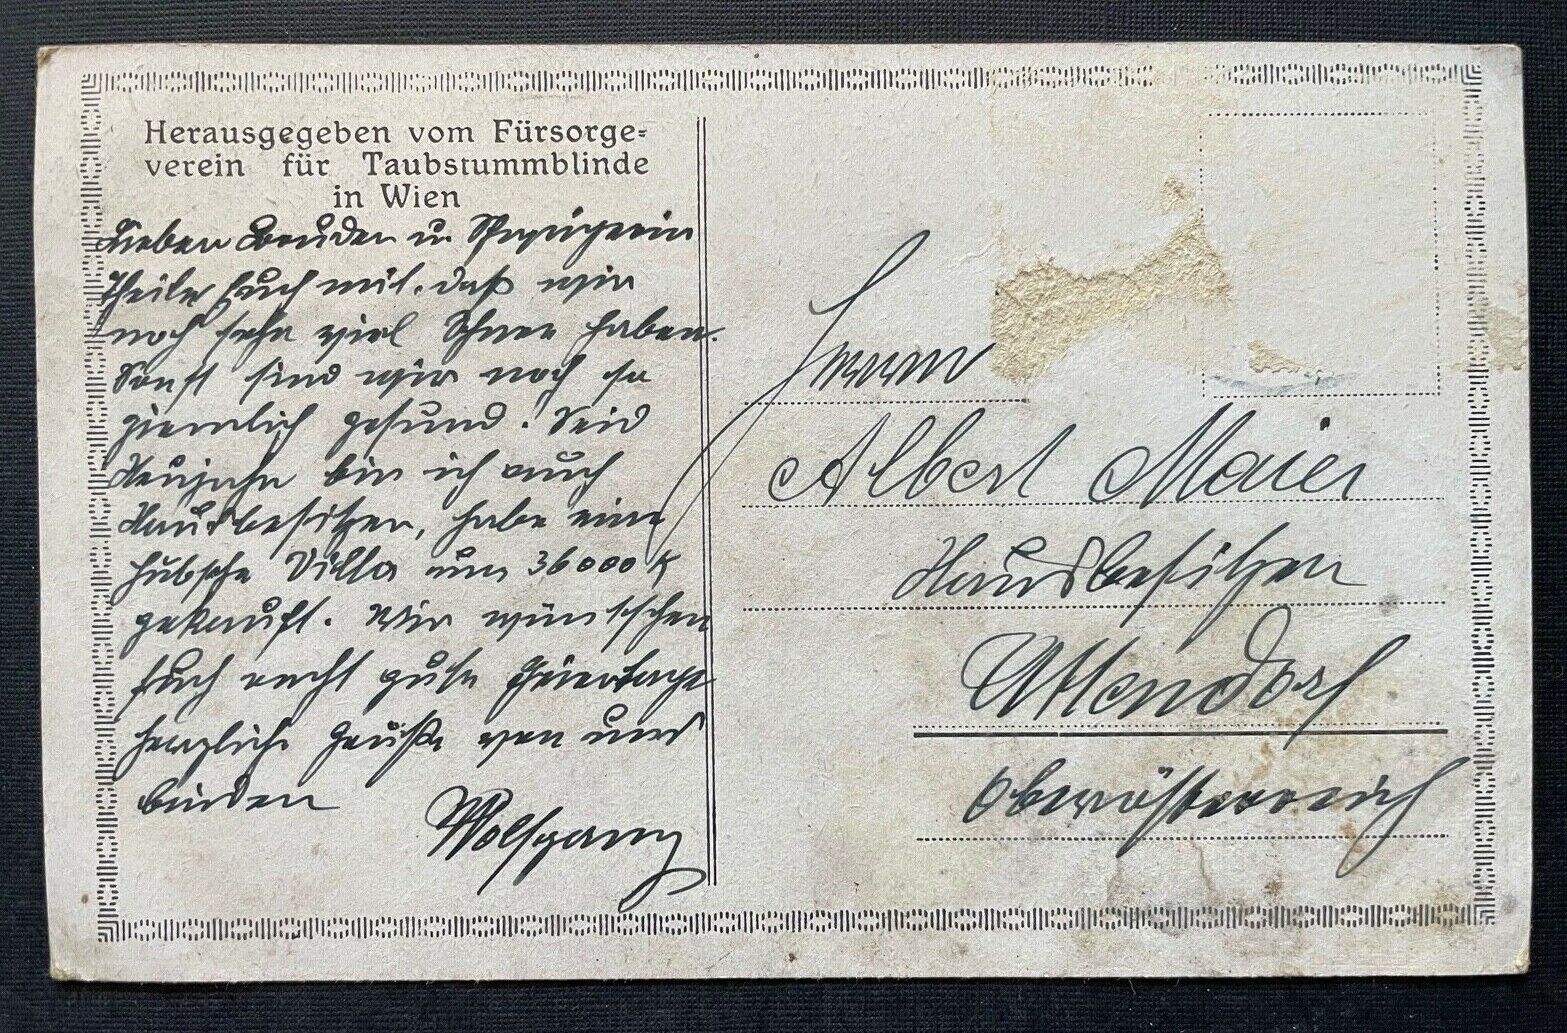 Herausgegeben vom Fürsorge-
verein für Taubstummblinde
in Wien
Lieber Bruder u. Schwägerin
Theile Euch mit, daß wir
noch sehr viel Schnee haben.
Sonst sind wir noch so
ziemlich gesund. Seid
Neujahr bin ich auch
Hausbesitzer, habe eine
hübsche Villa um 36000 K
gekauft. Wir wünschen
Euch recht gute Feiertage
herzliche Grüße von uns
beiden
Wolfgang
Herrn
Albert Maier
Hausbesitzer
Uttendorf
Oberösterreich